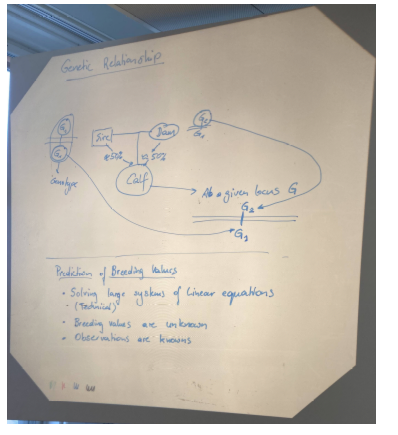 Genetic Relationship
Sire
Dam
G2
G1
50%
50%
Genotype
Calf
At a given locus G
G2
G1
Prediction of Breeding Values
• Solving large systems of linear equations
- (Technical)
• Breeding values are unknown
• Observations are knowns